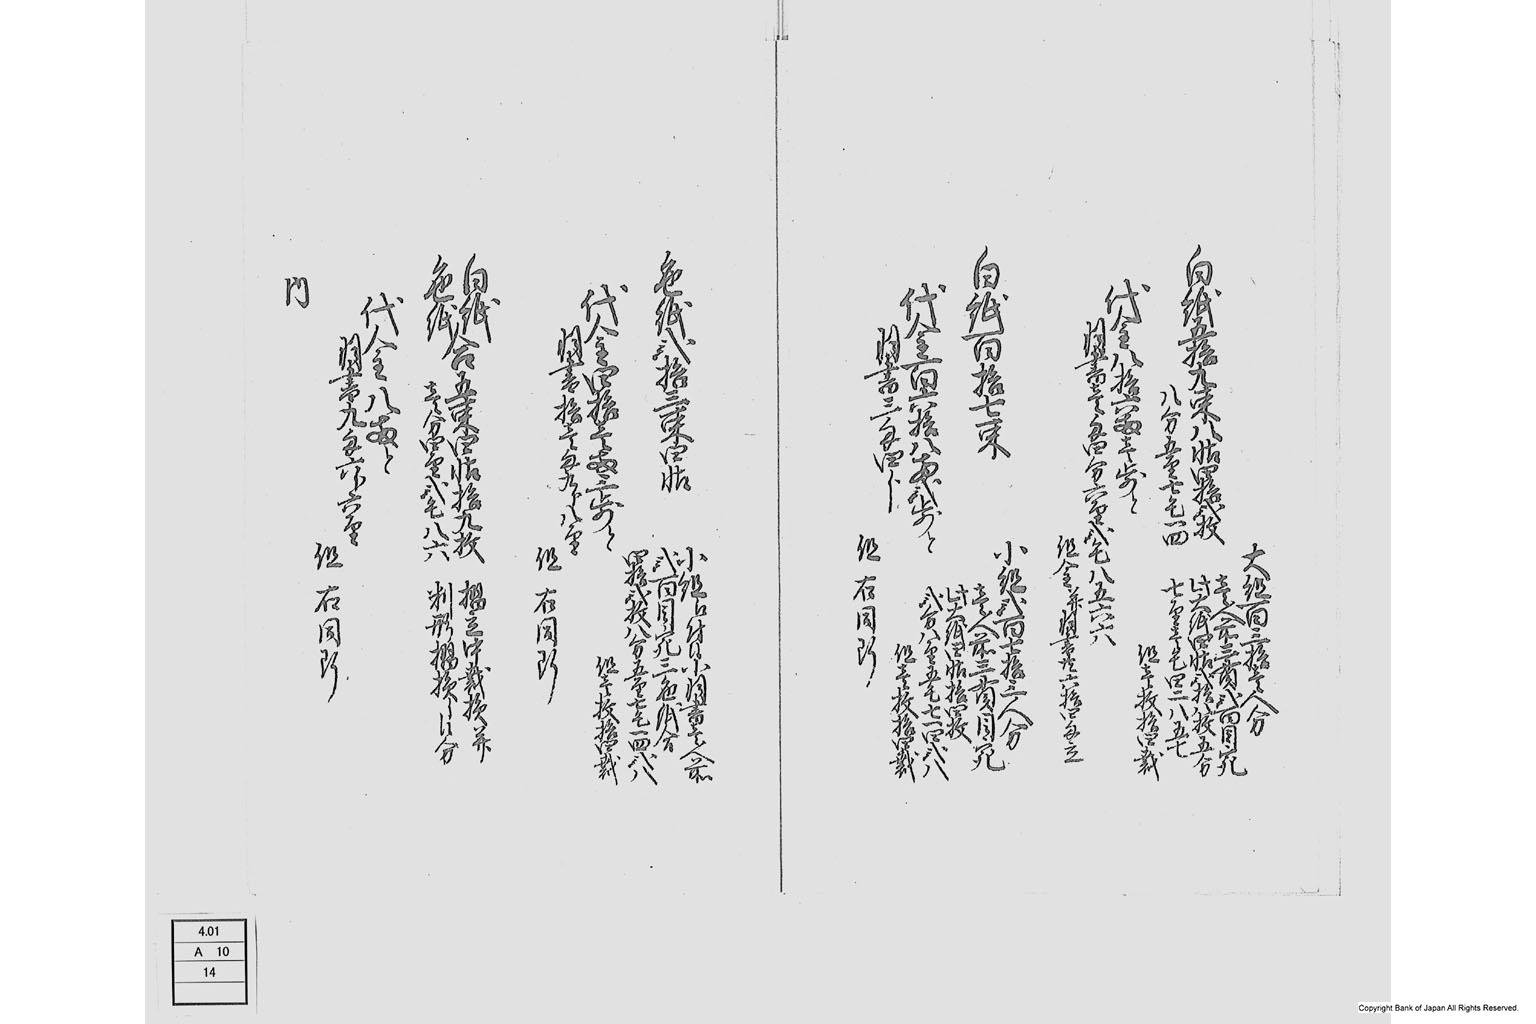 白紙五拾九束八帖四拾弐枚
八分五厘七毛一四
大組百三拾壱人分
壱人前三百弐百目宛
此紙四帖弐拾八枚五分
七厘壱毛四二八五七
但壱枚拾四裁
代金八拾六両壱歩ト
銀壱匁四分六厘弐毛八五六六
但金并銀六拾四匁立
白紙百拾七束
小組弐百七拾三人分
壱人前三百目宛
此紙四帖拾四枚
弐分八厘五毛七一四弐八
但壱枚拾四裁
代金百六拾八両弐歩ト
銀三匁四分
但右同断
色紙弐拾三束四帖
小組口付
弐百目宛三色紙合
四拾弐枚八分五厘七毛一四弐八
但壱枚拾四裁
代金四拾壱両三歩ト
銀拾壱匁九分八厘
但右同断
白紙
色紙
合五束四帖拾九枚
壱分四厘弐毛八六
摺立中裁損并
判形摺損之分
代金八両ト
銀九匁六分六厘
但右同断
内
4.01
A 10
14
Copyright Bank of Japan All Rights Reserved.